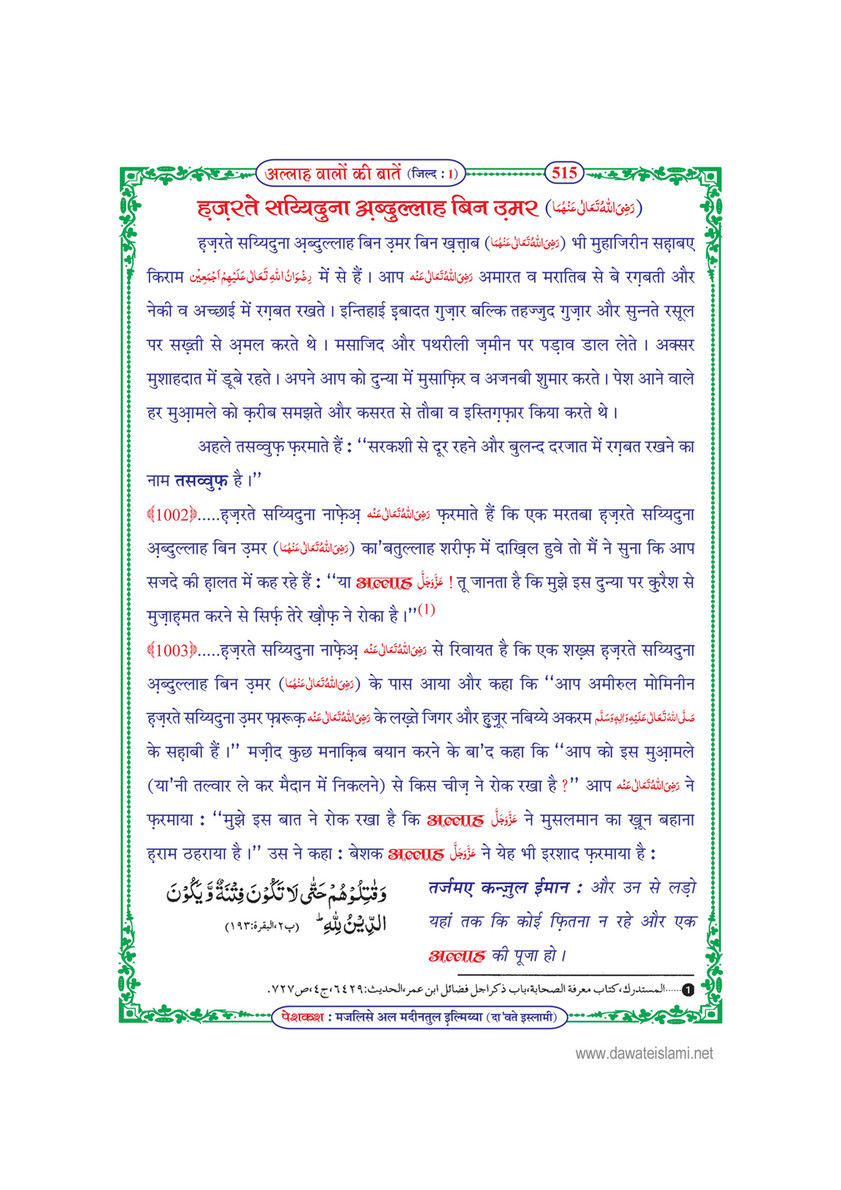 अल्लाह वालों की बातें (जिल्द : 1)
515
हज़रते सय्यिदुना अ़ब्दुल्लाह बिन उ़मर (رَضِیَ اللہُ تَعَالٰی عَنْهُمَا)
हज़रते सय्यिदुना अ़ब्दुल्लाह बिन उ़मर बिन ख़त्त़ाब (رَضِیَ اللہُ تَعَالٰی عَنْهُمَا) भी मुहाजिरीन सह़ाबए
किराम رِضْوَانُ اللہِ تَعَالٰی عَلَیْهِمْ اَجْمَعِیْن में से हैं । आप رَضِیَ اللہُ تَعَالٰی عَنْه अमारत व मरातिब से बे रग़बती और
नेकी व अच्छाई में रग़बत रखते । इन्तिहाई इबादत गुज़ार बल्कि तहज्जुद गुज़ार और सुन्नते रसूल
पर सख़्ती से अ़मल करते थे । मसाजिद और पथरीली ज़मीन पर पड़ाव डाल लेते । अक्सर
मुशाहदात में डूबे रहते । अपने आप को दुन्या में मुसाफ़िर व अजनबी शुमार करते । पेश आने वाले
हर मुआ़मले को क़रीब समझते और कसरत से तौबा व इस्तिग़फ़ार किया करते थे ।
अहले तसव्वुफ़ फ़रमाते हैं : ‘‘सरकशी से दूर रहने और बुलन्द दरजात में रग़बत रखने का
नाम तसव्वुफ़ है ।’’
﴾1002﴿.....हज़रते सय्यिदुना नाफ़ेअ़ رَضِیَ اللہُ تَعَالٰی عَنْه फ़रमाते हैं कि एक मरतबा हज़रते सय्यिदुना
अ़ब्दुल्लाह बिन उ़मर (رَضِیَ اللہُ تَعَالٰی عَنْهُمَا) का’बतुल्लाह शरीफ़ में दाख़िल हुवे तो मैं ने सुना कि आप
सजदे की हालत में कह रहे हैं : ‘‘या अल्लाह عَزَّوَجَلَّ ! तू जानता है कि मुझे इस दुन्या पर क़ुरैश से
मुज़ाह़मत करने से सिर्फ़ तेरे ख़ौफ़ ने रोका है ।’’(1)
﴾1003﴿.....हज़रते सय्यिदुना नाफ़ेअ़ رَضِیَ اللہُ تَعَالٰی عَنْه से रिवायत है कि एक शख़्स हज़रते सय्यिदुना
अ़ब्दुल्लाह बिन उ़मर (رَضِیَ اللہُ تَعَالٰی عَنْهُمَا) के पास आया और कहा कि ‘‘आप अमीरुल मोमिनीन
हज़रते सय्यिदुना उ़मर फ़ारूक़ رَضِیَ اللہُ تَعَالٰی عَنْه के लख़्ते जिगर और हुज़ूर नबिय्ये अकरम صَلَّی اللہُ تَعَالٰی عَلَیْهِ وَاٰلِهٖ وَسَلَّم
के सह़ाबी हैं ।’’ मज़ीद कुछ मनाक़िब बयान करने के बा’द कहा कि ‘‘आप को इस मुआ़मले
(या’नी तल्वार ले कर मैदान में निकलने) से किस चीज़ ने रोक रखा है ?’’ आप رَضِیَ اللہُ تَعَالٰی عَنْه ने
फ़रमाया : ‘‘मुझे इस बात ने रोक रखा है कि अल्लाह عَزَّوَجَلَّ ने मुसलमान का ख़ून बहाना
ह़राम ठहराया है ।’’ उस ने कहा : बेशक अल्लाह عَزَّوَجَلَّ ने येह भी इरशाद फ़रमाया है :
وَقٰتِلُوْهُمْ حَتّٰى لَا تَكُوْنَ فِتْنَةٌ وَّیَكُوْنَ
الدِّیْنُ لِلّٰهِؕ (پ٢،البقرة:١٩٣)
तर्जमए कन्ज़ुल ईमान : और उन से लड़ो
यहां तक कि कोई फ़ितना न रहे और एक
अल्लाह की पूजा हो ।
❶......المستدرك،كتاب معرفة الصحابة،باب ذكر اجل فضائل ابن عمر،الحديث:٦٤٢٩،ج٤،ص٧٢٧.
पेशकश : मजलिसे अल मदीनतुल इ़ल्मिय्या (दा’वते इस्लामी)
www.dawateislami.net